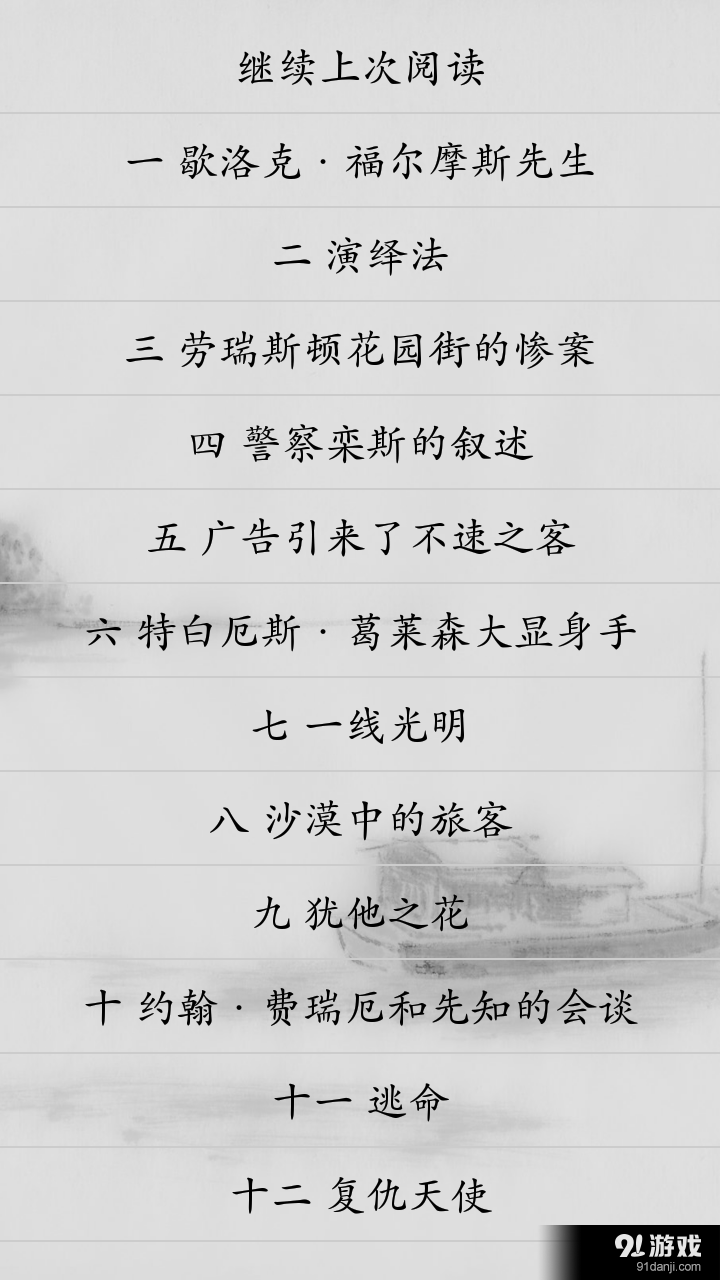 继续上次阅读
一 歇洛克·福尔摩斯先生
二 演绎法
三 劳瑞斯顿花园街的惨案
四 警察栾斯的叙述
五 广告引来了不速之客
六 特白厄斯·葛莱森大显身手
七 一线光明
八 沙漠中的旅客
九 犹他之花
十 约翰·费瑞厄和先知的会谈
十一 逃命
十二 复仇天使
91游戏
91danji.com